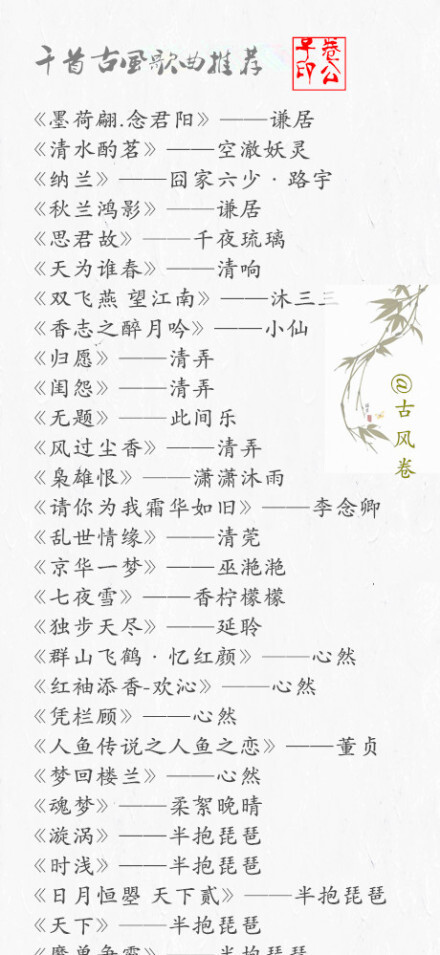 千首古风歌曲推荐
卷公子印
《墨荷翩.念君阳》——谦居
《清水酌茗》——空澈妖灵
《纳兰》——囧家六少·路宇
《秋兰鸿影》——谦居
《思君故》——千夜琉璃
《天为谁春》——清响
《双飞燕 望江南》——沐三三
《香志之醉月吟》——小仙
《归愿》——清弄
《闺怨》——清弄
《无题》——此间乐
《风过尘香》——清弄
《枭雄恨》——潇潇沐雨
《请你为我霜华如旧》——李念卿
《乱世情缘》——清莞
《京华一梦》——巫滟滟
《七夜雪》——香柠檬檬
《独步天尽》——延聆
《群山飞鹤·忆红颜》——心然
《红袖添香-欢沁》——心然
《凭栏顾》——心然
《人鱼传说之人鱼之恋》——董贞
《梦回楼兰》——心然
《魂梦》——柔絮晚晴
《漩涡》——半抱琵琶
《时浅》——半抱琵琶
《日月恒曌 天下贰》——半抱琵琶
《天下》——半抱琵琶
《魔兽争霸》——半抱琵琶
@古风卷